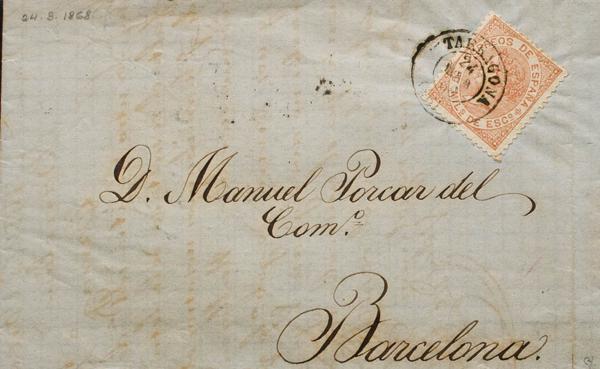 24. 3. 1868
TARRAGONA
24
CORREOS DE ESPAÑA
MILS DE ESCO
D. Manuel Porcar del
Comº
Barcelona.